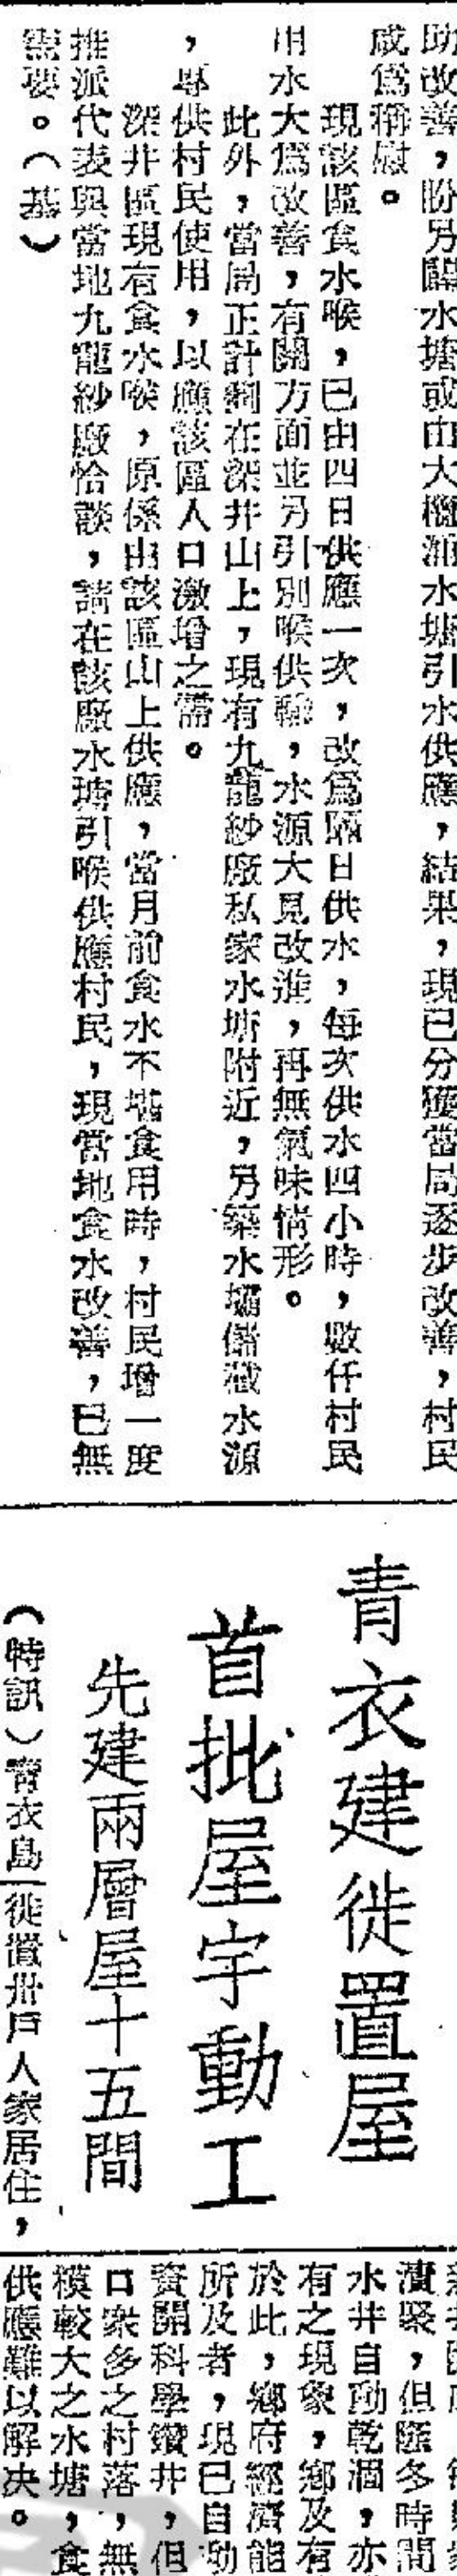 助改善，盼另闢水塘或由大欖涌水塘引水供應，結果，現已分獲當局逐步改善，村民
咸爲稱慰。
現該區食水喉，已由四日供應一次，改爲隔日供水，每次供水四小時，數仟村民
用水大爲改善，有關方面並另引別喉供輸，水源大見改進，再無氣味情形。
此外，當局正計劃在深井山上，現有九龍紗廠私家水塘附近，另築水壩儲藏水源
，專供村民使用，以應該區人口激增之需。
深井區現有食水喉，原係由該區山上供應，當月前食水不堪食用時，村民增一度
推派代表與當地九龍紗廠恰談，請在該廠水塘引喉供應村民，現當地食水改善，已無
需要。（基）
青衣建徙置屋
首批屋宇動工
先建兩層屋十五間
（特訊）靑衣島徙置卅戶人家居住，
水井自動乾涸，亦
有之現象，鄉及有
於此，鄉府經濟能
所及者，現已自動
資開科學鑽井，但
口衆多之村落，無
模較大之水塘，食
供應難以解決。